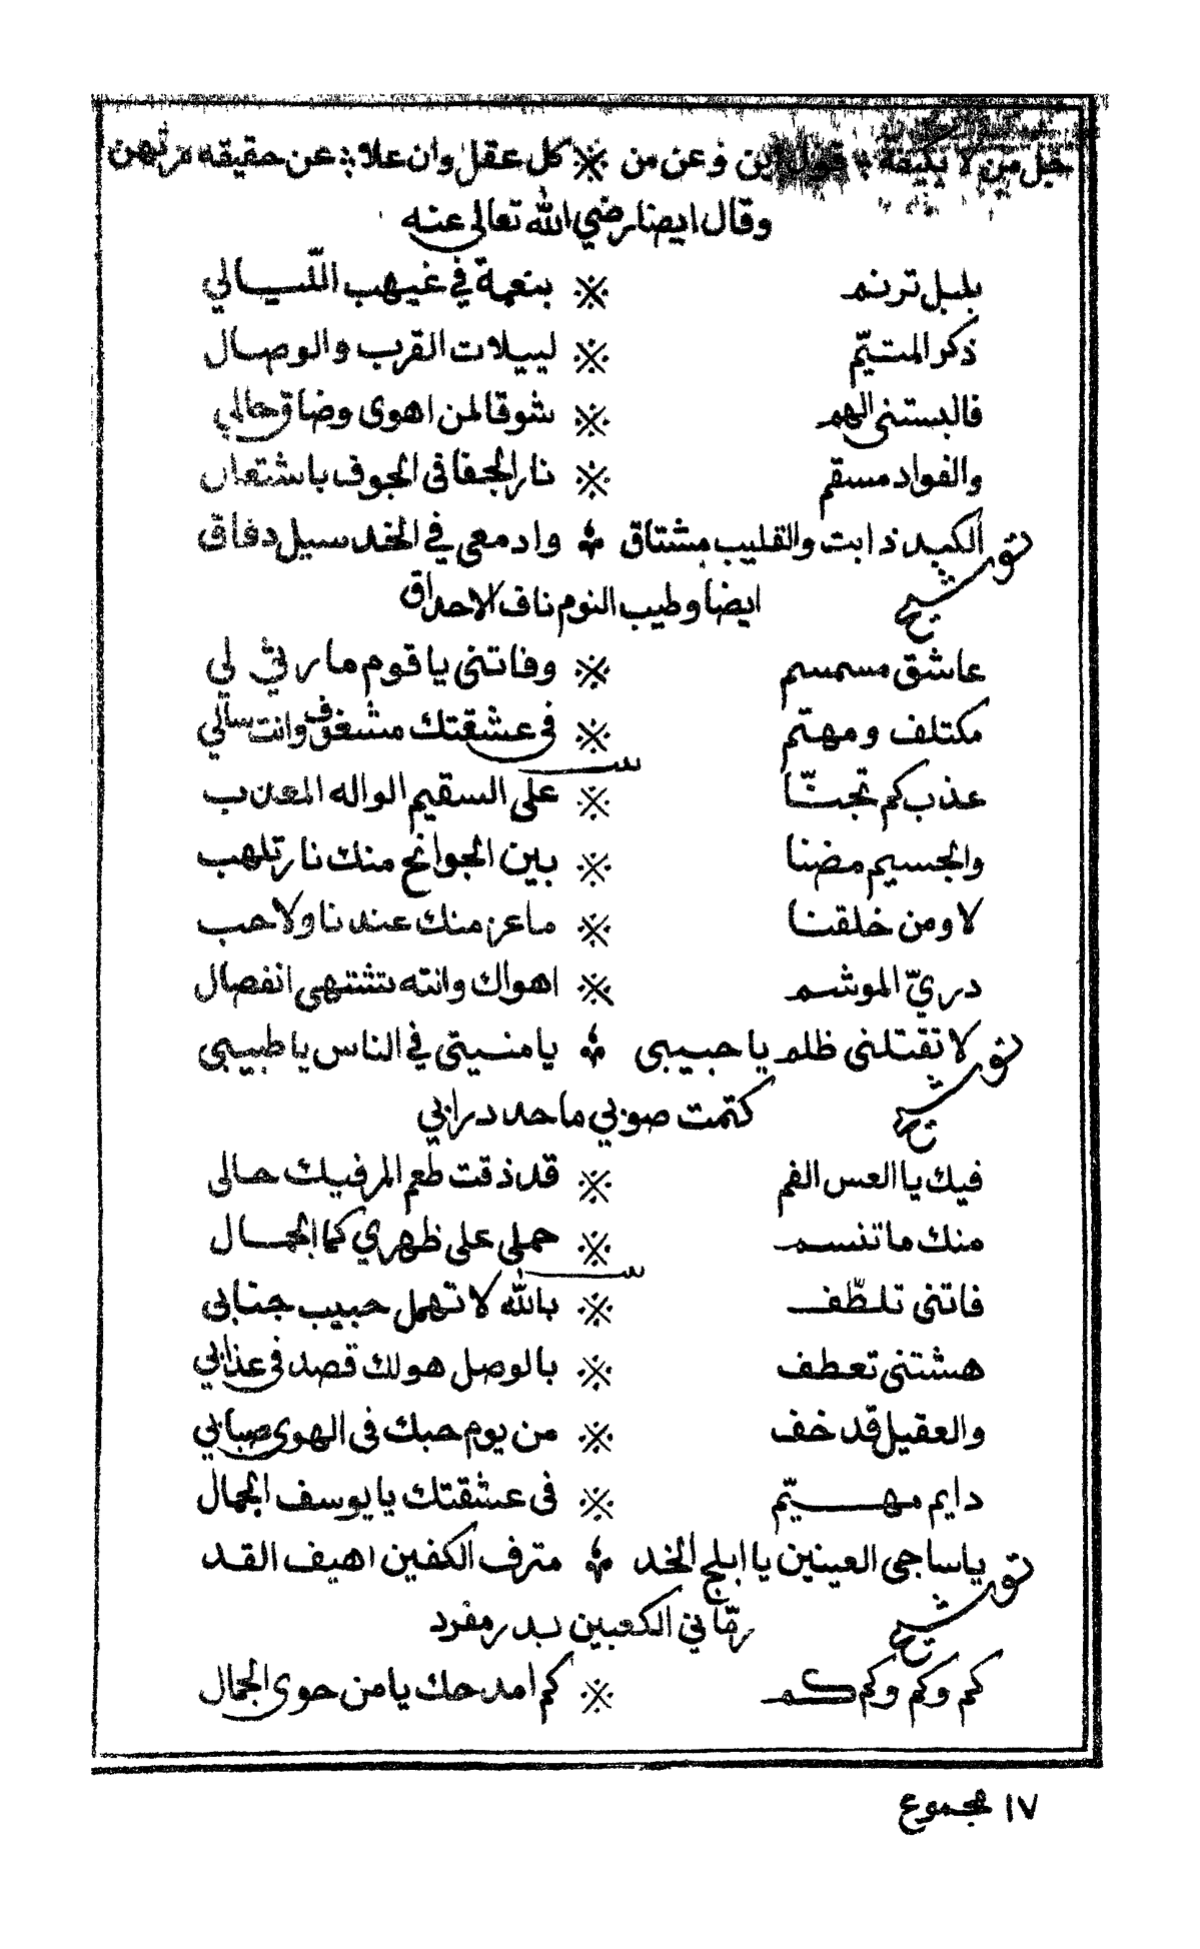 جل من لا تكيفه ؞ قول اين وعن من ※ كل عقل وان علا ؞ عن حقيقه مرتهن
وقال ايضا رضي الله تعالى عنه
بلبل ترنم ※ بنعمة في غيهب اللّيالي
ذكر المتيّم ※ ليييلات القرب والوصال
فالبستنى الهم ※ شوقا لمن اهوى وضاق حالي
والفواد مسقم ※ نار الجفا فى الجوف باشتعال
توشيح الكبد ذابت والقليب مشتاق ؞ وادمعي في الخد سيل دفاق
ايضا وطيب النوم ناف الاحداق
عاشق مسمسم ※ وفاتنى يا قوم ما رثي لي
مكتلف ومهتّم ※ فى عشقتك مشغف وانت سالي
عذب كم تجنّا ※ على السقيم الواله المعذب
والجسيم مضنا ※ بين الجوانح منك نار تلهب
لا ومن خلقنا ※ ما عز منك عندنا ولا حب
دريّ الموشم ※ اهواك وانته تشتهي انفصال
توشيح لا تقتلنى ظلم يا حبيبى ؞ يا منيتي في الناس يا طبيبى
كتمت صوبي ما حد درابي
فيك يا العس الفم ※ قد ذقت طعم المر فيك حالى
منك ما تنسم ※ حملى على ظهري كما الجبال
فاتنى تلطّف ※ بالله لا تهمل حبيب جنابى
هشتنى تعطف ※ بالوصل هو لك قصد فى عذابي
والعقيل قد خف ※ من يوم حبك فى الهوى صبابي
دايم مهيّم ※ فى عشقتك يا يوسف الجمال
توشيح يا ساجى العينين يا ابلج الخد ؞ مترف الكفين اهيف القد
رمّاني الكعبين بدر مفرد
كم وكم وكم كم ※ كم امدحك يا من حوى الجمال
١٧ مجموع